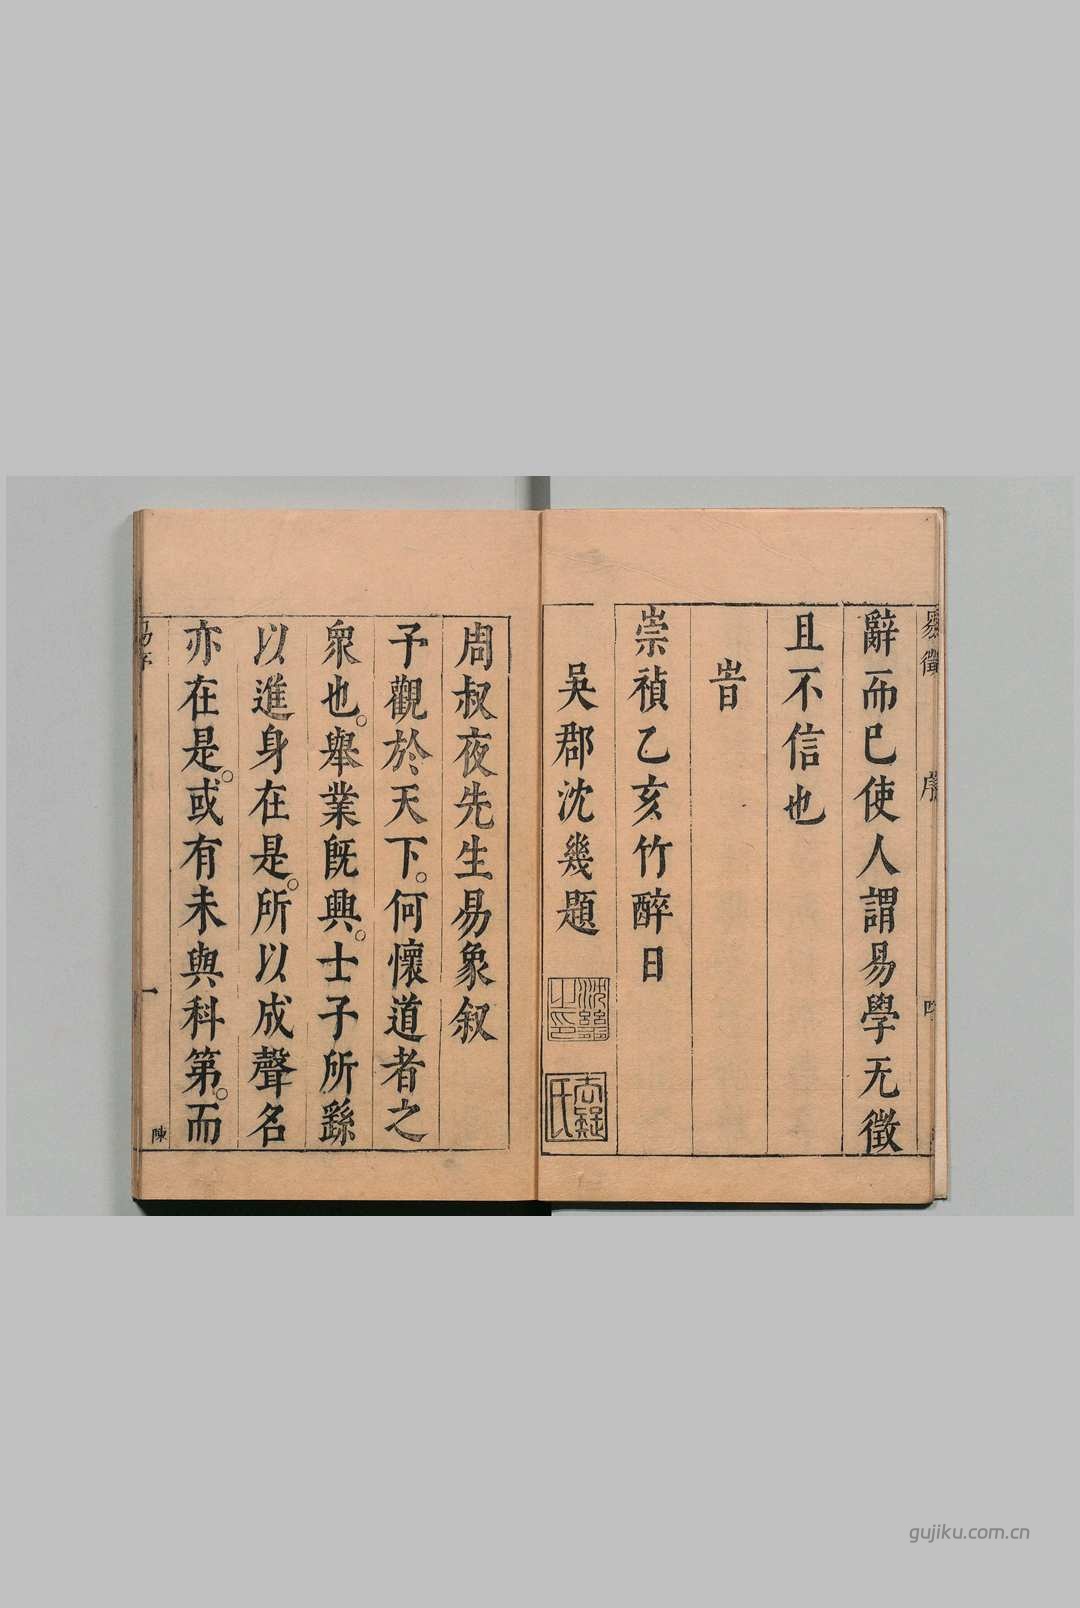 辭而已使人謂易學无徵
且不信也
旹
崇禎乙亥竹醉日
吳郡沈幾題
周叔夜先生易象叙
予觀於天下。何懷道者之
衆也。舉業旣興。士子所繇
以進身在是。所以成聲名
亦在是。或有未與科第。而
陳
gujiku.com.cn